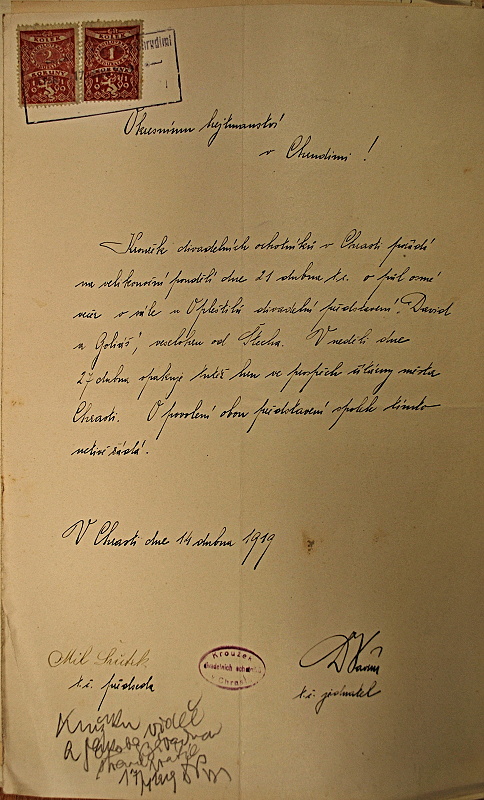 2
1
Okresnímu hejtmanství
v Chrudimi!
Kroužek divadelních ochotníků v Chrasti pořádá
na velikonoční pondělí dne 21 dubna t.r. o půl osmé
več. v sále u Opletštilů divadelní představení: "David
a Goliáš", veselohen od Štecha. V neděli dne
27 dubna opakuje tutéž hru ve prospěch útulny města
Chrasti. O povolení obou představení spolek tímto
uctivě žádá.
V Chrasti dne 14 dubna 1919
Mil
t.č. předseda
Kroužek
divadelních ochotníků
v Chrasti
t.č. jednatel
viděl
a
17